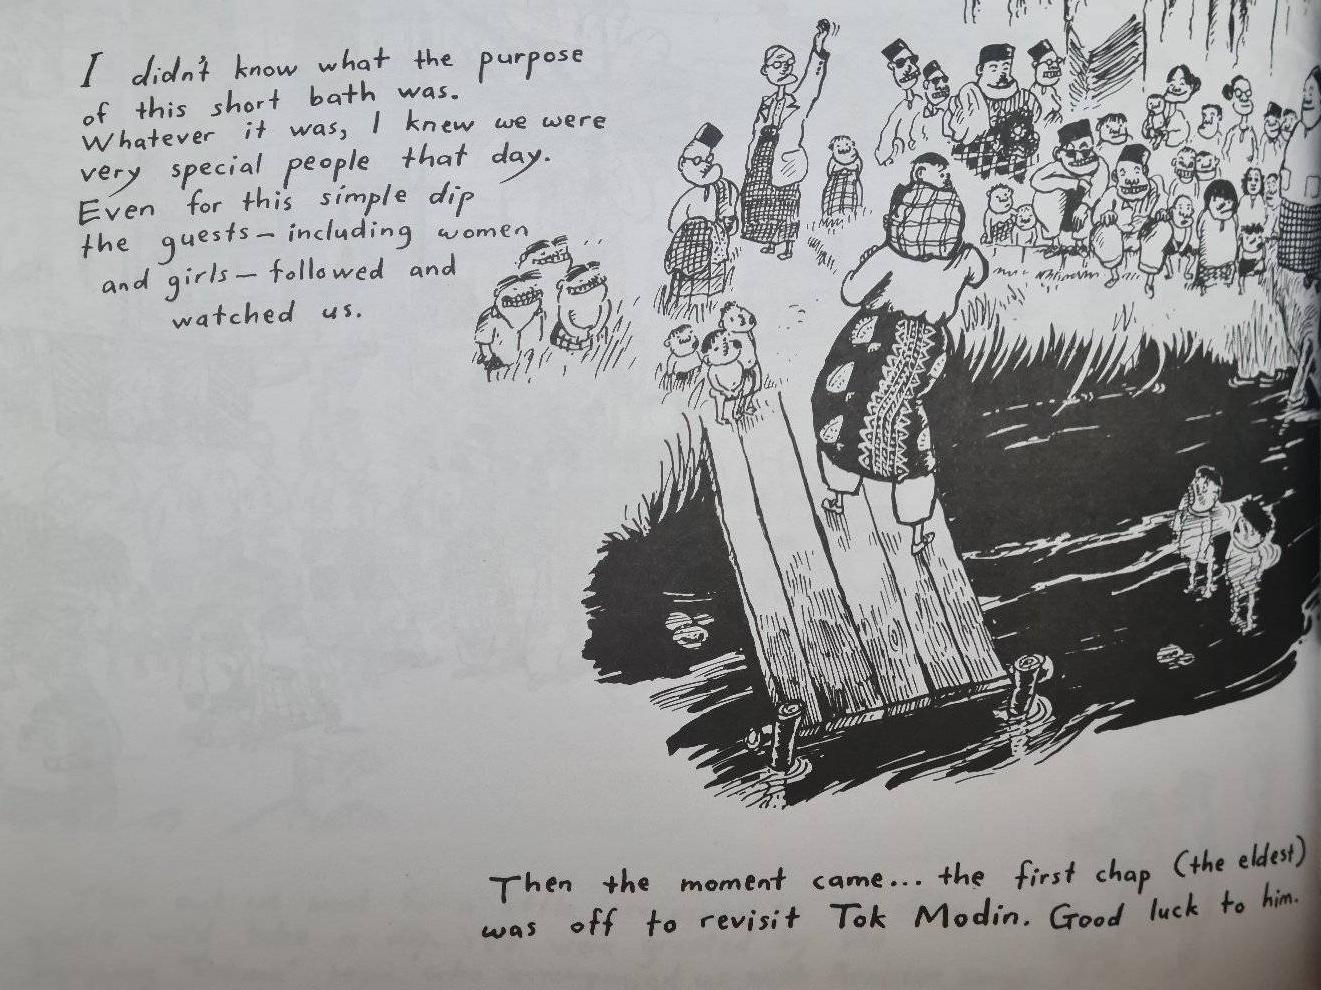 I didn't know what the purpose
of this short bath was.
Whatever it was, I knew we were
very special people that day.
Even for this simple dip
the guests – including women
and girls – followed and
watched us.
Then the moment came... the first chap (the eldest)
was off to revisit Tok Modin. Good luck to him.